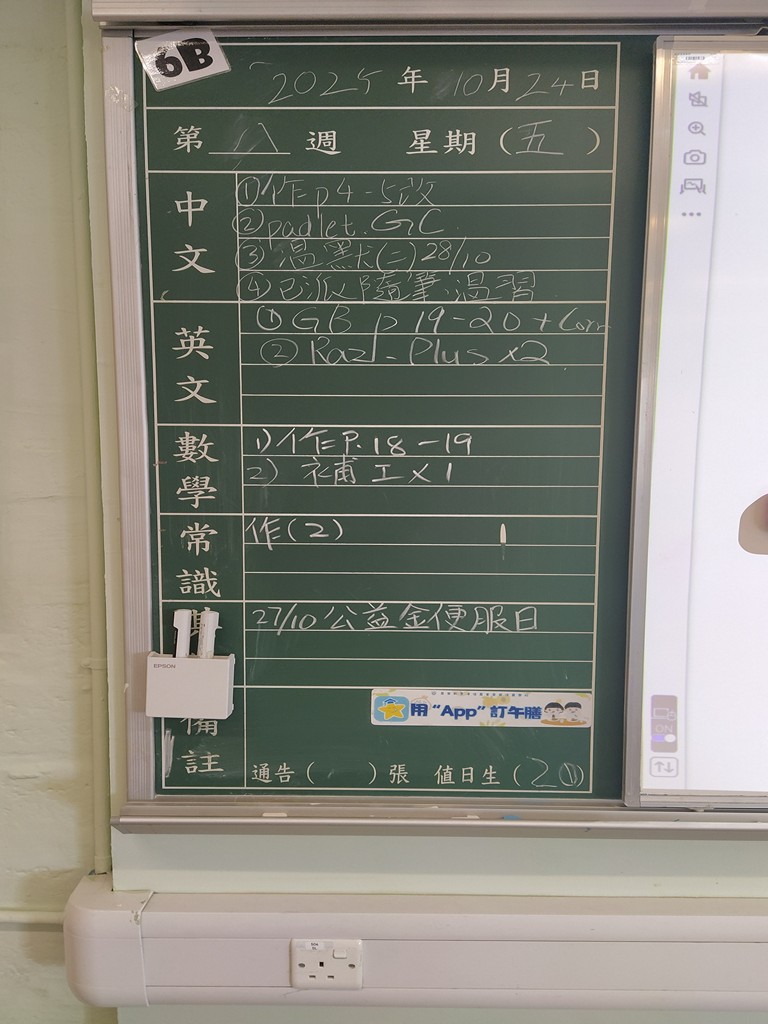 6B
2025年10月24日
第 八 週 星期(五)
中文
①作p4-5改
②padlet. GC
③溫默(二)28/10
④已派隨筆.溫習
英文
①GB p 19-20 + Corr
②Raz-Plus x2
數學
1)作P.18-19
2) 補工×1
常識
作(2)
27/10公益金便服日
EPSON
備註
用“App”訂午膳
通告( )張 值日生(20)
ON